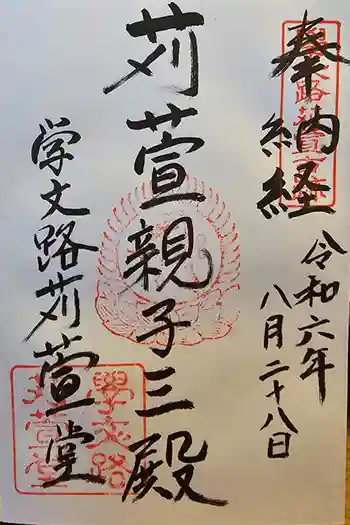 奉納経
令和六年
八月二十八日
苅萱親子三殿
学文路苅萱堂